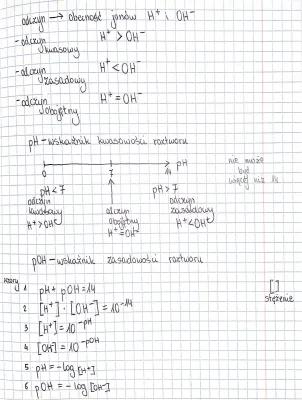 odczyn → obecność jonów H⁺ i OH⁻
-odczyn kwasowy H⁺ > OH⁻
-odczyn zasadowy H⁺ < OH⁻
-odczyn obojętny H⁺ = OH⁻
pH-wskaźnik kwasowości roztworu
0 7 14 pH
nie może być więcej niż 14
pH < 7 pH > 7
odczyn kwasowy H⁺ > OH⁻
odczyn obojętny H⁺ = OH⁻
odczyn zasadowy H⁺ < OH⁻
pOH-wskaźnik zasadowości roztworu
wzory
1 pH + pOH = 14
2 [H⁺] · [OH⁻] = 10⁻¹⁴
[ ] stężenie
3 [H⁺] = 10^-pH
4 [OH⁻] = 10^-pOH
5 pH = -log [H⁺]
6 pOH = -log [OH⁻]